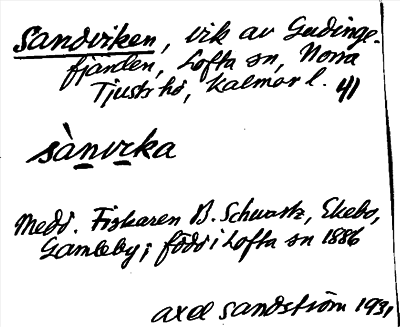 Sandviken, vik av Gudinge-
fjärden, Lofta sn, Norra
Tjusts hd, Kalmar l. 41
sànvika
Medd. Fiskaren B. Schwartz, Ekebo,
Gamleby; född i Lofta sn 1886
axel sandström 1931